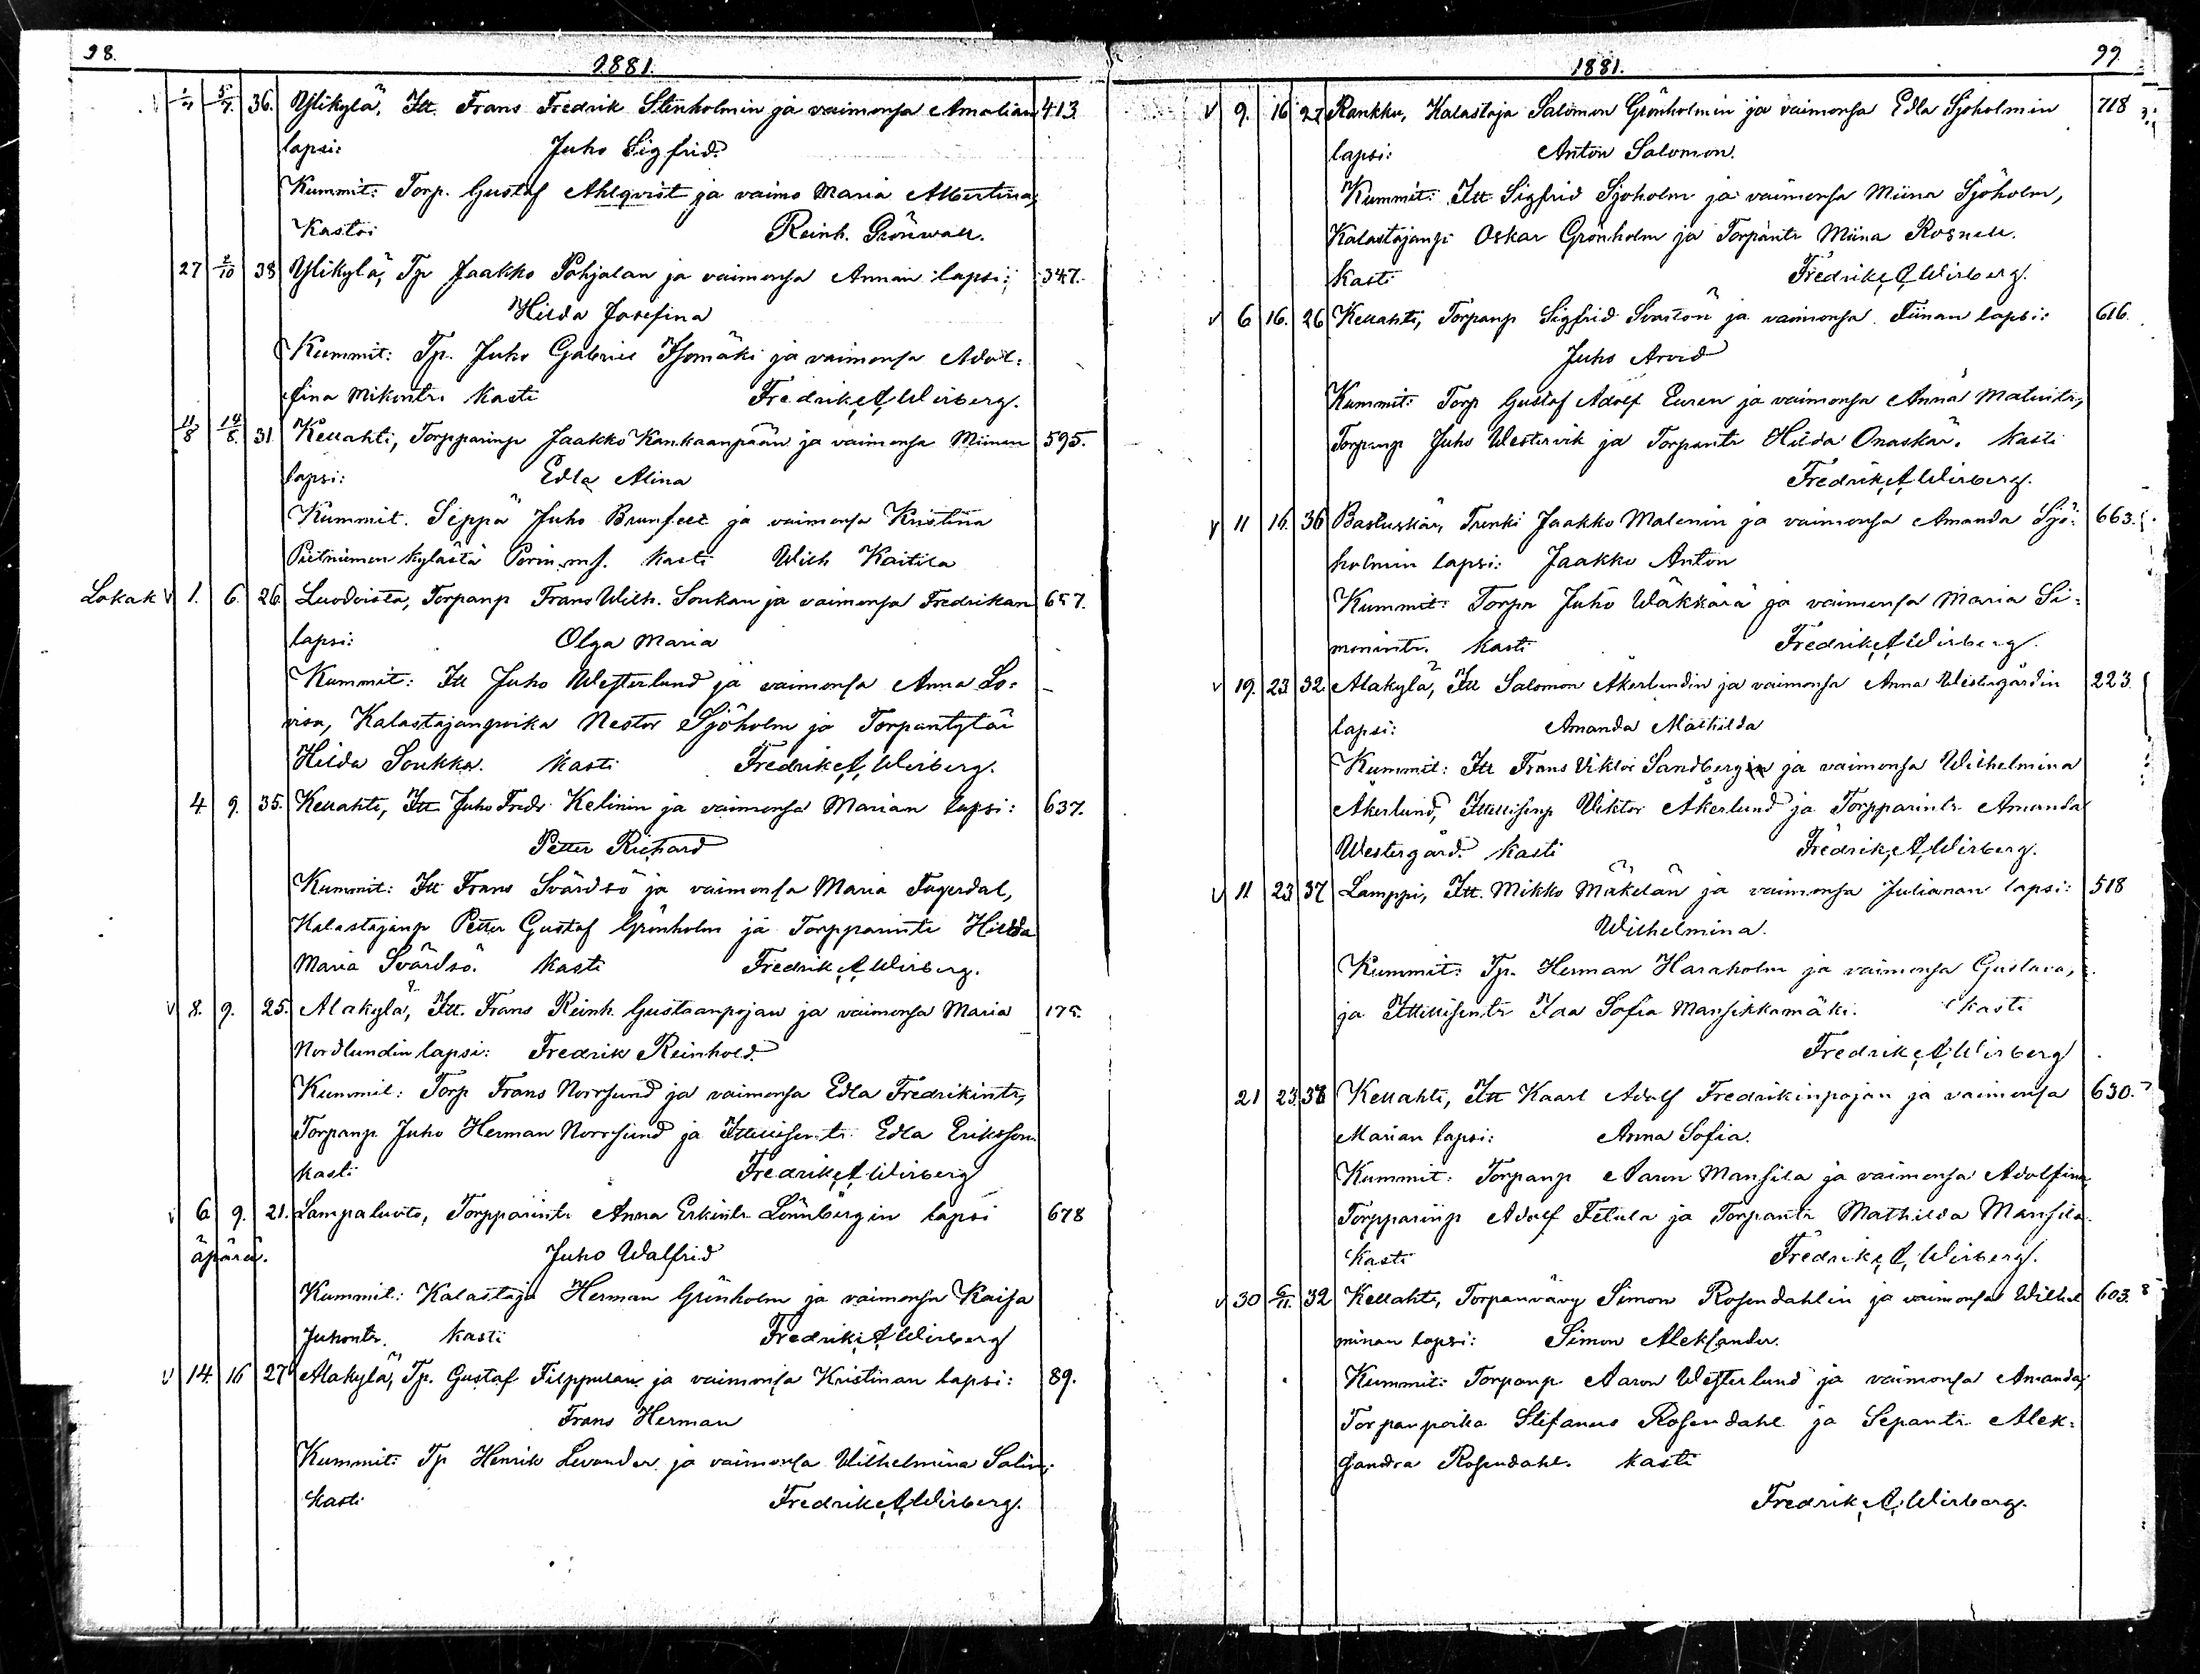 98.
1881.
1/4 5/7. 36. Ylikylä, Itt. Frans Fredrik Stenholmin ja vaimonsa Amalian 413.
lapsi: Juho Sigfrid.
Kummit: Torp. Gustaf Ahlqvist ja vaimo Maria Albertina,
Kastoi Reinh. Grönwall.
27 2/10 38 Ylikylä, Tp Jaakko Pohjalan ja vaimonsa Annan lapsi: 347.
Hilda Josefina
Kummit: Tp. Juho Gabriel Isomäki ja vaimonsa Adol=
fina Mikontr. Kasti Fredrik A Wirberg.
11/8 14/8. 31 Kellahti, Torpparinp Jaakko Kankaanpään ja vaimonsa Miinan 595.
lapsi: Edla Alina
Kummit. Seppä Juho Brunfelt ja vaimonsa Kristina
Pietniemen kylästä Porin m.s. Kasti Wilh Kaitila
Lokak v 1. 6. 26. Luodoista, Torpanp Frans Wilh. Soukan ja vaimonsa Fredrikan 657.
lapsi: Olga Maria
Kummit: Itt Juho Westerlund ja vaimonsa Anna Lo=
visa, Kalastajanpoika Nestor Sjöholm ja Torpantytär
Hilda Soukka. Kasti Fredrik A Wirberg.
4 9. 35. Kellahti, Itt Juho Fredr. Kelinin ja vaimonsa Marian lapsi: 637.
Petter Richard
Kummit: Itt Frans Svärdsö ja vaimonsa Maria Fagerdal,
Kalastajanp Petter Gustaf Grönholm ja Torpparintr Hilda
Maria Svärdsö. Kasti Fredrik A Wirberg.
v 8. 9. 25. Alakylä, Itt. Frans Reinh. Gustaanpojan ja vaimonsa Maria 175.
Nordlundin lapsi: Fredrik Reinhold.
Kummit: Torp Frans Norrsund ja vaimonsa Edla Fredrikintr,
Torpanp. Juho Herman Norrsund ja Itsellisentr. Edla Eriksson.
kasti Fredrik A Wirberg
v 6 9. 21. Lampaluoto, Torpparintr Anna Erkintr. Lönnbergin lapsi 678
äpärä. Juho Walfrid
Kummit: Kalastaja Herman Grönholm ja vaimonsa Kaisa
Juhontr. Kasti Fredrik A Wirberg
v 14. 16 27 Alakylä, Tp. Gustaf Filppulan ja vaimonsa Kristinan lapsi: 89.
Frans Herman
Kummit: Tp Henrik Levander ja vaimonsa Wilhelmina Salin,
kasti Fredrik A Wirberg.
99
1881.
v 9. 16 27 Rankku, Kalastaja Salomon Grönholmin ja vaimonsa Edla Sjöholmin 718
lapsi: Anton Salomon.
Kummit: Itt Sigfrid Sjöholm ja vaimonsa Miina Sjöholm,
Kalastajanp Oskar Grönholm ja Torpantr Miina Rosnell.
Kasti Fredrik A Wirberg.
v 6 16. 26 Kellahti, Torpanp Sigfrid ja vaimonsa Tiinan lapsi: 616.
Juho Arvid
Kummit: Torp Gustaf Adolf Euren ja vaimonsa Anna Matintr,
Torpanp Juho Westervik ja Torpantr Hilda Onaskär. Kasti
Fredrik A Wirberg.
v 11 16. 36 Bastuskär, Trenki Jaakko Malenin ja vaimonsa Amanda Sjö= 663.
holmin lapsi: Jaakko Anton
Kummit: Torpn Juho Wäkkärä ja vaimonsa Maria Si=
monintr. Kasti Fredrik A Wirberg.
v 19. 23 32. Alakylä, Itt Salomon Åkerlundin ja vaimonsa Anna Westergårdin 223.
lapsi: Amanda Mathilda
Kummit: Itt Frans Viktor Sandbergin ja vaimonsa Wilhelmina
Åkerlund, Itsellisenp Viktor Åkerlund ja Torpparintr Amanda
Westergård. Kasti Fredrik A Wirberg.
v 11 23 37 Lamppi, Itt. Mikko Mäkelän ja vaimonsa Julianan lapsi: 518
Wilhelmina.
Kummit: Tp. Herman Haraholm ja vaimonsa Gustava,
ja Itsellisentr Ida Sofia Mansikkamäki. kasti
Fredrik A Wirberg
21 23. 38 Kellahti, Itt Kaarl Adolf Fredrikinpojan ja vaimonsa 630.
Marian lapsi: Anna Sofia.
Kummit: Torpanp Aaron Mansila ja vaimonsa Adolfina
Torpparinp Adolf Tetula ja Torpantr Mathilda Mansila.
Kasti Fredrik A Wirberg.
v 30 6/11. 32 Kellahti, Torpanvävy Simon Rosendahlin ja vaimonsa Wilhel 603.
minan lapsi: Simon Aleksander.
Kummit: Torpanp Aaron Westerlund ja vaimonsa Amanda,
Torpanpoika Stefanus Rosendahl ja Sepäntr. Alek=
sandra Rosendahl. kasti
Fredrik A Wirberg.